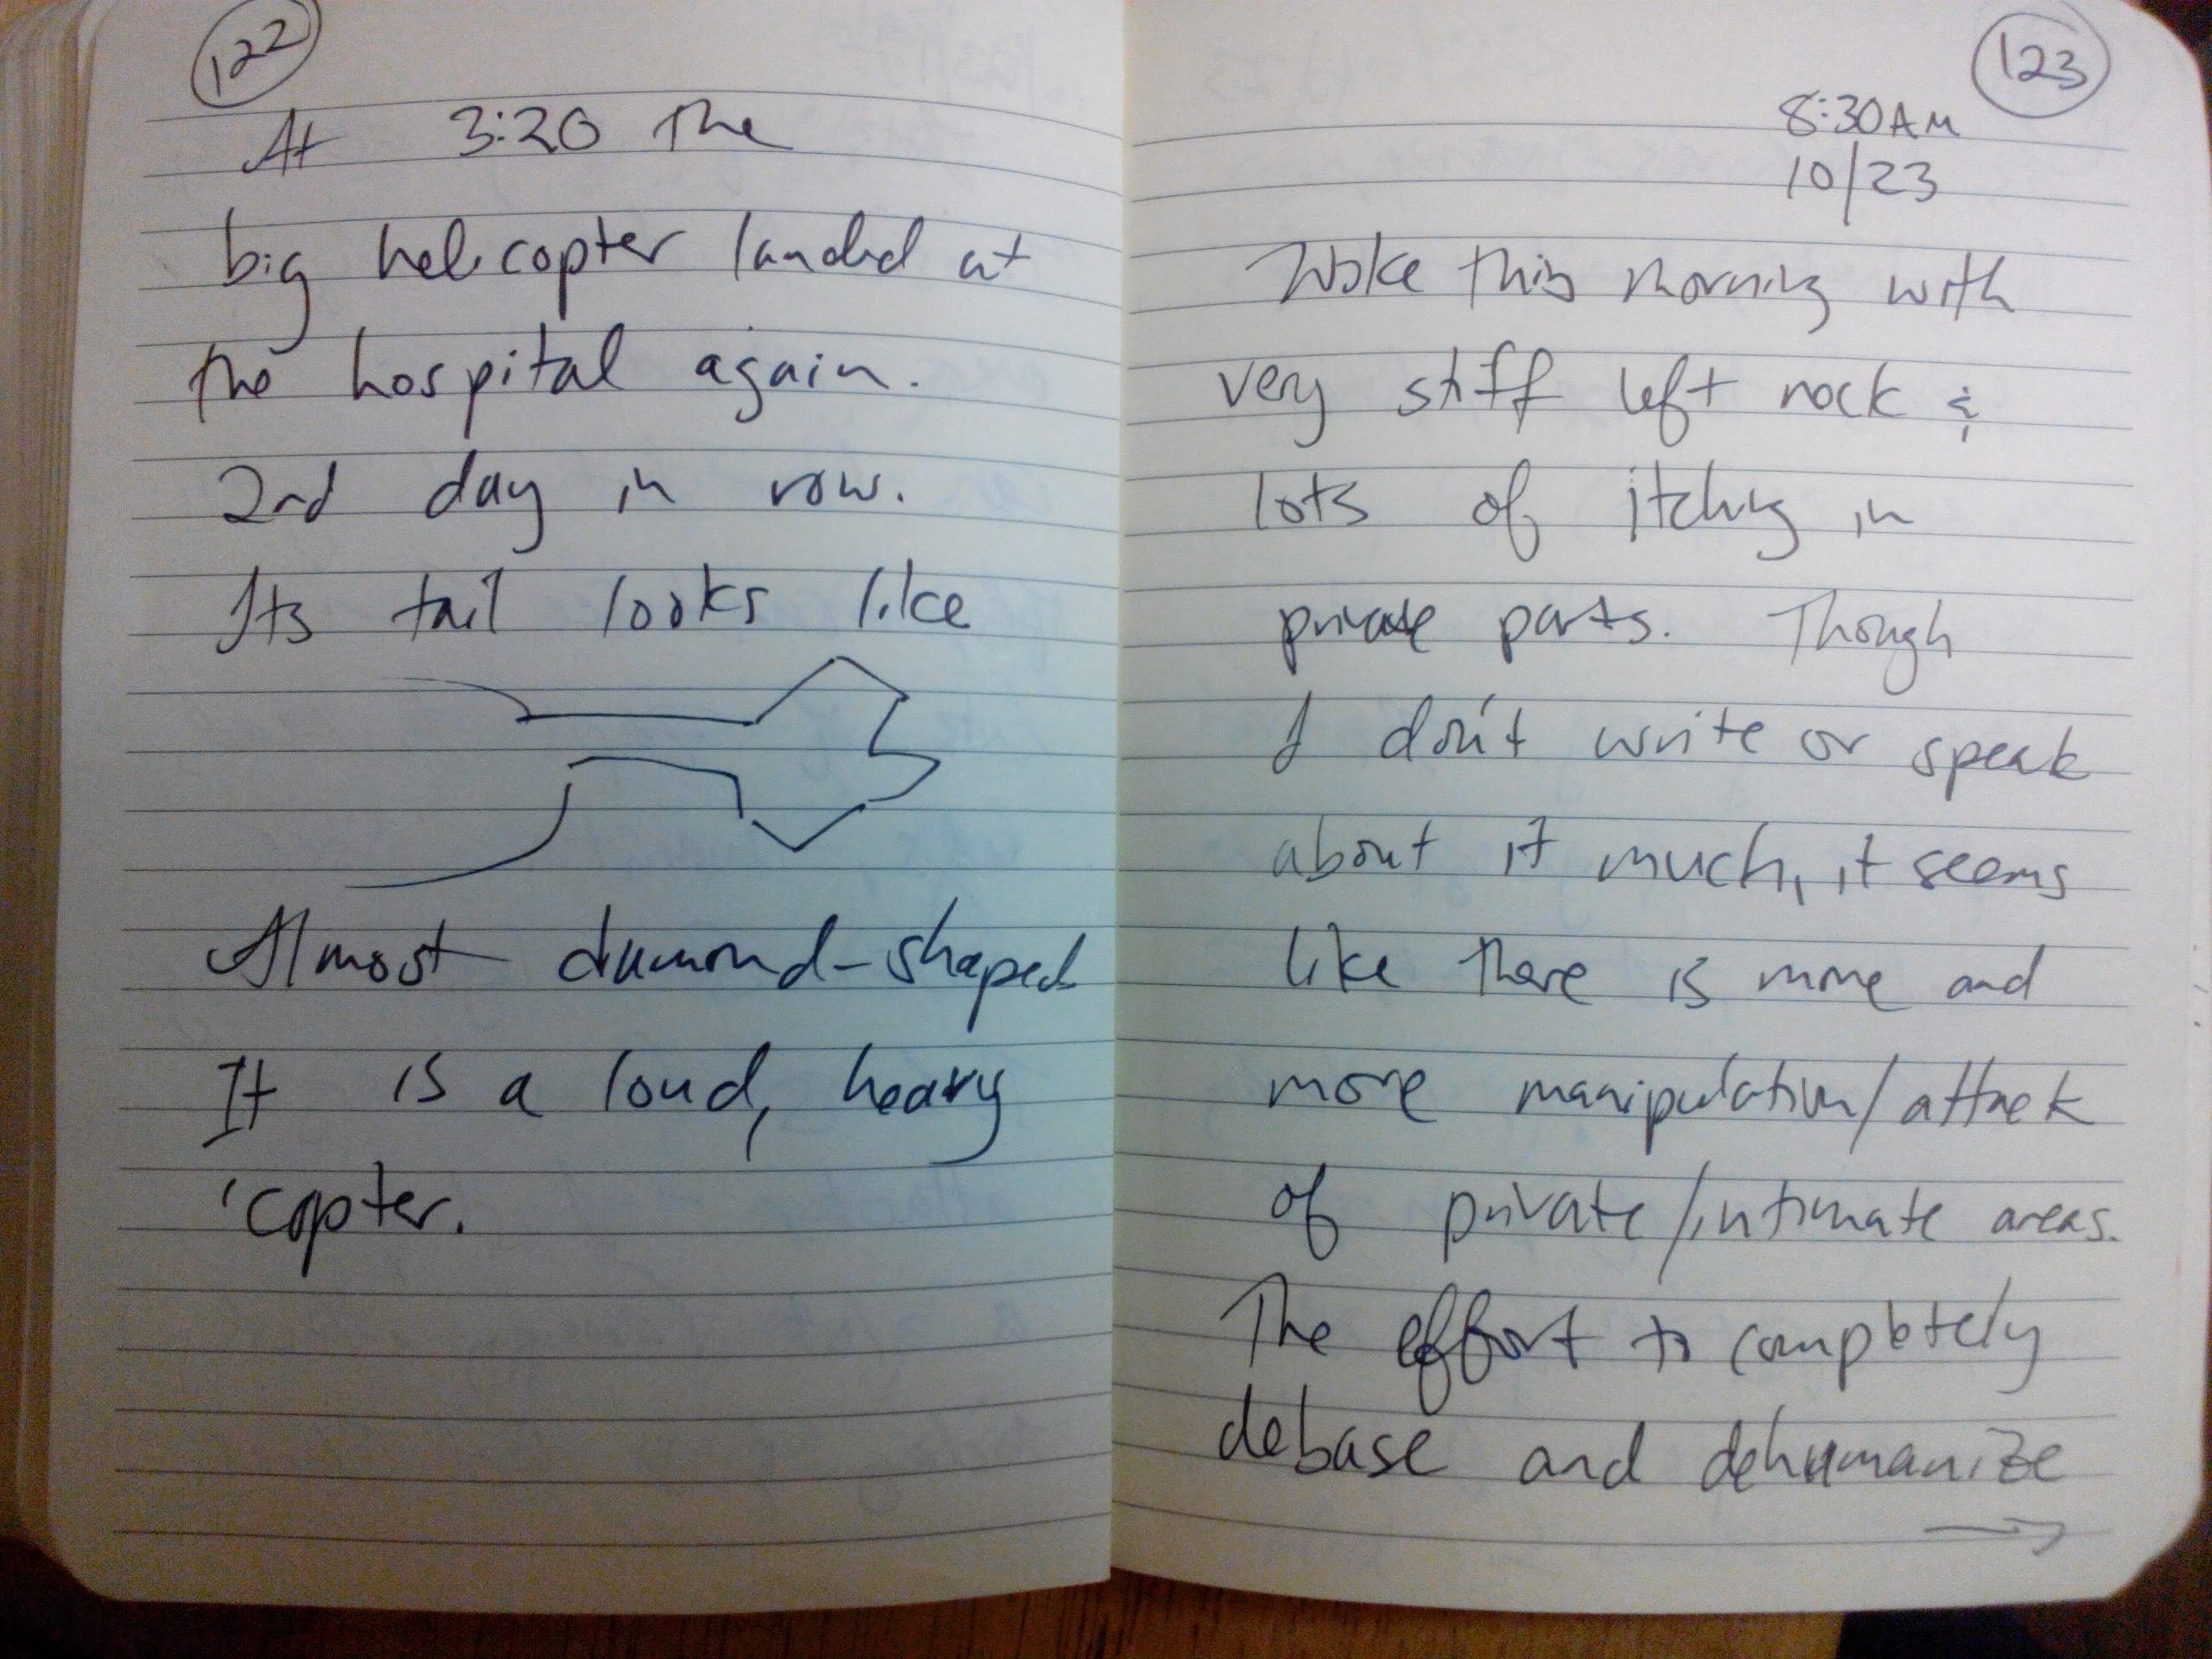 122
At 3:20 the
big helicopter landed at
the hospital again.
2nd day in row.
Its tail looks like
Almost diamond-shaped
It is a loud, heavy
'copter.
123
8:30AM
10/23
Woke this morning with
very stiff left neck &
lots of itching in
private parts. Though
I don't write or speak
about it much, it seems
like there is more and
more manipulation/attack
of private/intimate areas.
The effort to completely
debase and dehumanize
→